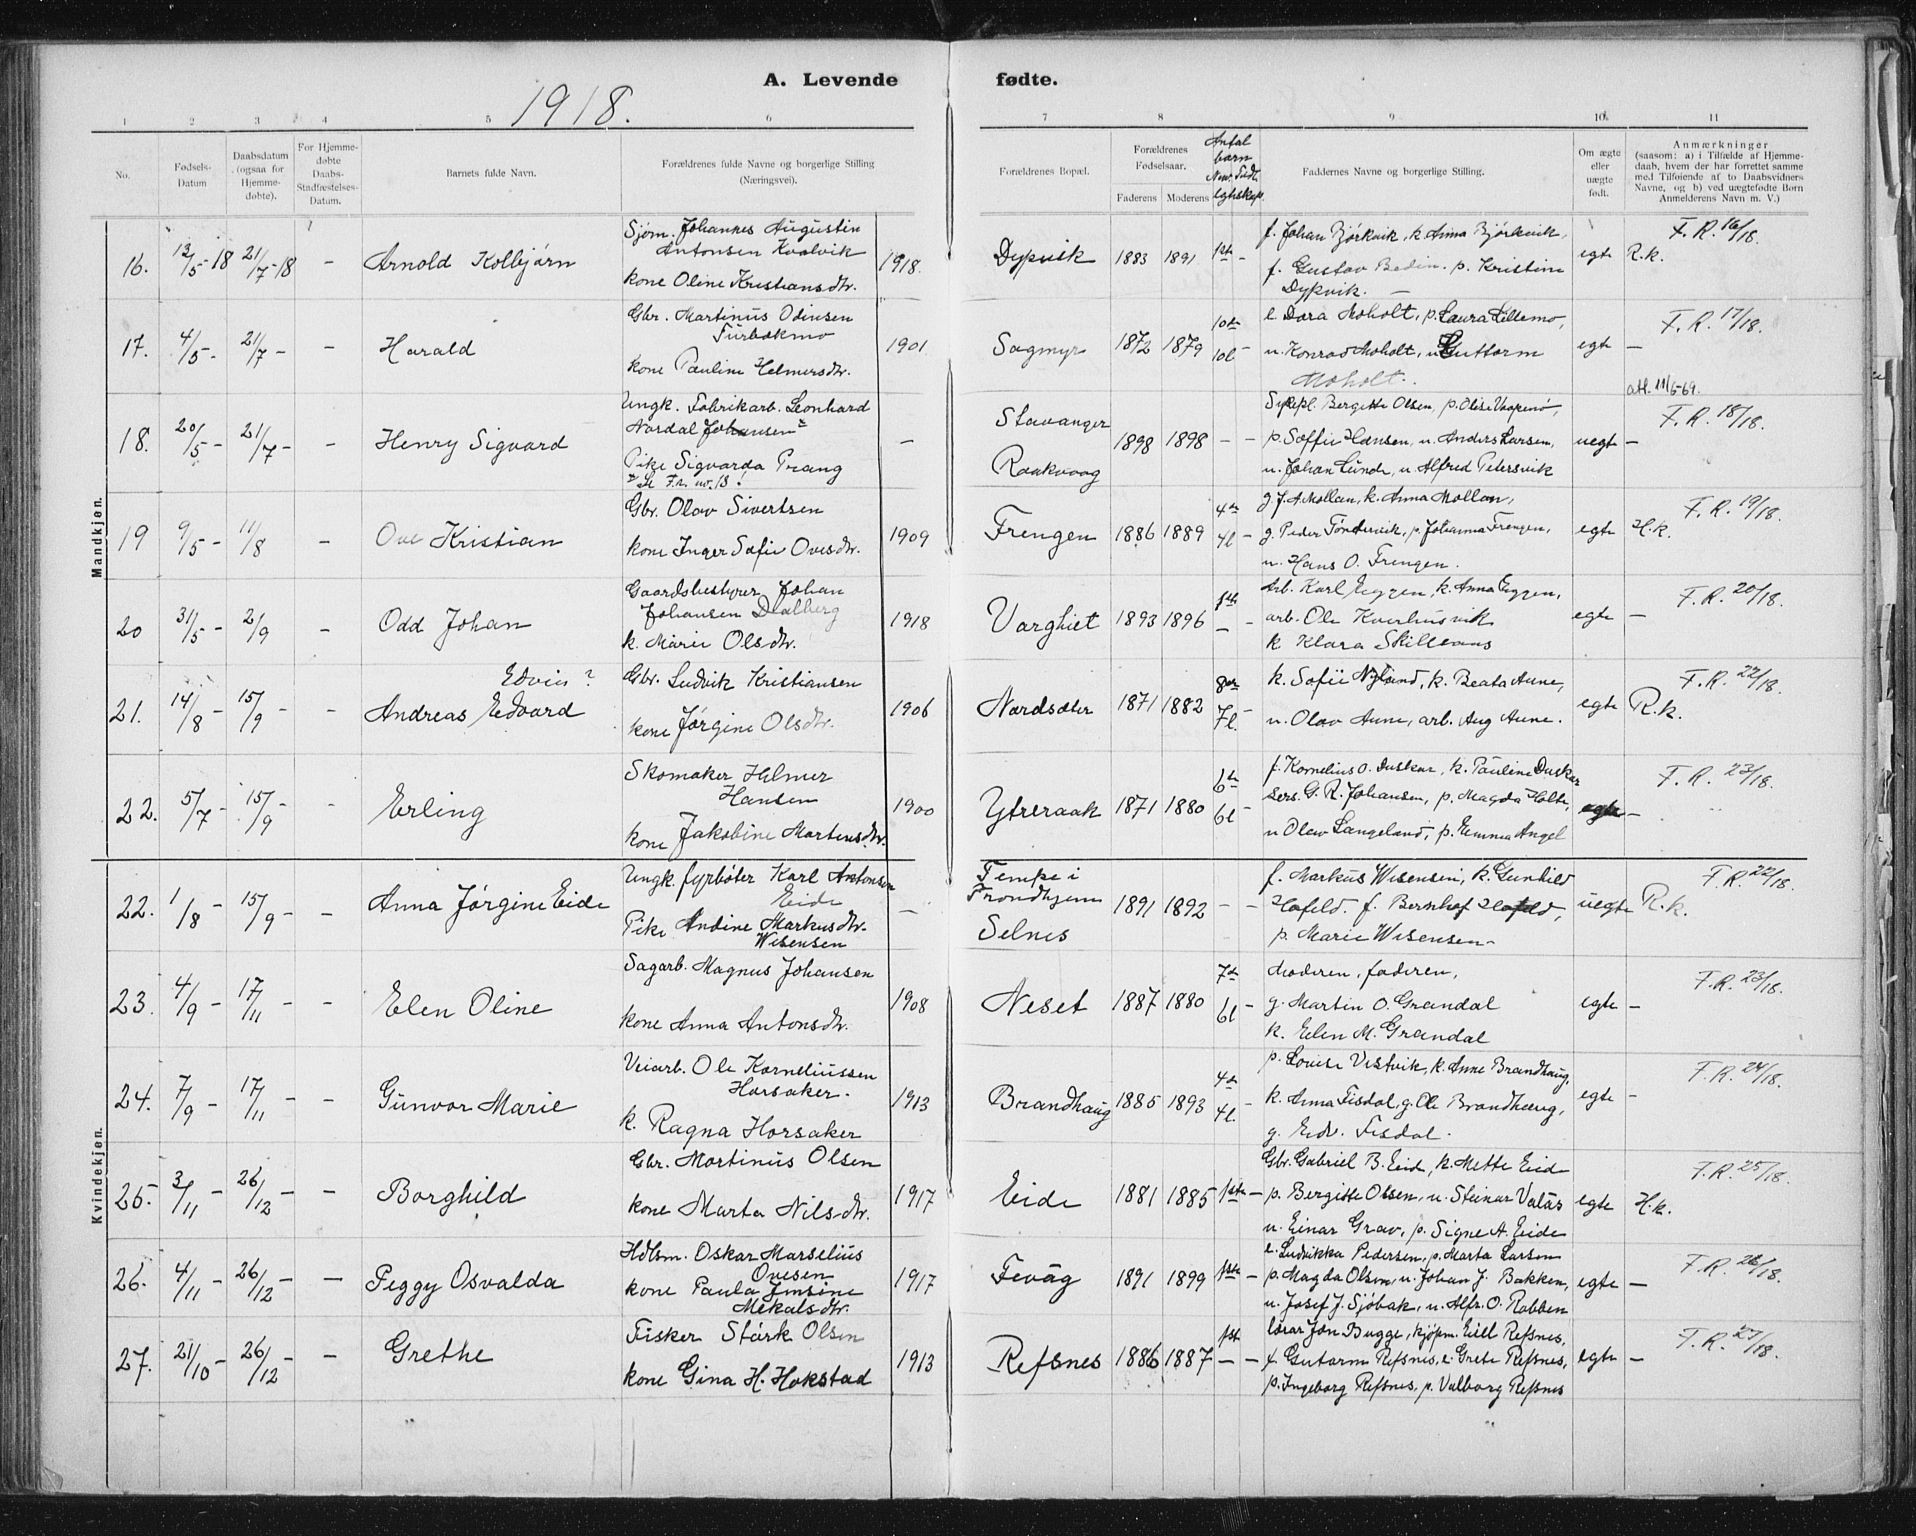 A. Levende fødte.
1918.
1 2 3 4 5 6 7 8 9 10 11
No.
Fødsels-
Datum
Daabsdatum
(ogsaa for
Hjemme-
døbte).
For Hjemme-
døbte
Daabs-
Stadfæstelses-
Datum.
Barnets fulde Navn.
Forældrenes fulde Navne og borgerlige Stilling
(Næringsvei).
Forældrenes Bopæl.
Forældrenes
Fødselsaar.
Faderens Moderens
Antal
barn
Faddernes Navne og borgerlige Stilling.
Om ægte
eller
uægte
født.
Anmærkninger
(saasom: a) i Tilfælde af Hjemme-
daab, hvem der har forrettet samme
med Tilføiende af to Daabsvidners
Navne, og b) ved uægtefødte Børn
Anmelderens Navn m. V.)
Mandkjøn.
16. 13/5-18 21/7-18 – Arnold Kolbjørn
Sjøm. Johannes Augustin
Antonsen Kvalvik
kone Oline Kristiansdtr.
1918. Dypvik 1883 1891 1ste –
f. Johan Bjørkvik, k. Anna Bjørkvik,
f. Gustav Bedin. p. Kristine
Dypvik. –
egte R.k. F.R. 16/18.
17. 4/5- 21/7- – Harald
Gbr. Martinus Odinsen
Turbekmo
kone Pauline Helmersdtr.
1901. Sagmyr 1872 1879 10de 10l –
e. Dora Moholt, p. Laura Lillemo,
u. Konrad Moholt, u. Guttorm
Moholt.
egte – F.R. 17/18.
att. 11/6-69.
18. 20/5- 21/7- – Henry Sigvard
Ungk. Fabrikarb. Leonhard
Nordal Johansen
Pike Sigvarda Prang
– Stavanger
Raakvaag
1898 1898 – –
Sykepl. Bergitte Olsen, p. Olise Vaapenø,
p. Soffie Hansen, u. Anders Larsen,
u. Johan Lunde, u. Alfred Petersvik
uegte – F.R. 18/18.
19 9/5- 11/8 – Ove Kristian
Gbr. Olav Sivertsen
kone Inger Sofie Ovesdtr.
1909 Frengen 1886 1889 4de 4l –
g. J. A. Mollan, k. Anna Mollan,
g. Peder Tøndervik, p. Johanna Frengen,
u. Hans O. Frengen.
egte H.k. F.R. 19/18.
20 31/5- 2/9 – Odd Johan
Gaardsbestyrer Johan
Johansen Dealberg
k. Marie Olsdtr.
1918 Varghiet 1893 1896 1ste – –
Arb. Karl Eggen, k. Anna Eggen,
arb. Ole Kverhusvik
k Klara Skilleaas
egte – F.R. 20/18.
Edvin?
21. 14/8- 15/9- – Andreas Edvard
Gbr. Ludvik Kristiansen
kone Jørgine Olsdtr.
1906 Nordsæter 1871 1882 8de 7l. –
k. Sofie Nyland, k. Beata Aune,
u. Olav Aune, arb. Aug Aune.
egte R.k. F.R. 22/18.
22. 5/7- 15/9- – Erling
Skomaker Helmer
Hansen
kone Jakobine Martinsdtr.
1900 Ytreraak 1871 1880 6te 6l –
f. Kornelius O. Duskar, k. Pauline Duskar
Sers. G. R. Johansen, p. Magda Holte,
u Olav Langeland, p. Emma Angel
egte – F.R. 23/18.
Kvindekjøn.
22. 1/8- 15/9- – Anna Jørgine Eide
Ungk. fyrbøter Karl Antonsen
Eide
Pike Andine Markusdtr.
Wesensen
– Tempe i
Trondhjem
Selnes
1891 1892 – –
f. Markus Wesensen, k. Gunhild
Hofeld. f. Bernhof Hofeld,
p. Marie Wesensen–
uegte R.k. F.R. 22/18.
23. 4/9- 17/11- – Elen Oline
Sagarb. Magnus Johansen
kone Anna Antonsdtr.
1908 Neset 1887 1880 7de 6l –
Moderen, faderen,
g. Martin O. Grandal
k. Elen M. Grandal
egte – F.R. 23/18.
24. 7/9- 17/11- – Gunvor Marie
Veiarb. Ole Korneliussen
Horsaker.
k. Ragna Horsaker
1913 Brandhaug 1885 1893 4de 4l.
p. Louise Vestvik, k. Anne Brandhaug,
k. Anna Fisdal, g. Ole Brandhaug,
g. Edv. Fisdal.
egte – F.R. 24/18.
25. 3/11- 26/12- – Borghild
Gbr. Martinus Olsen
kone Marta Nilsdtr.
1917 Eide 1881 1885 1ste –
Gbr. Gabriel B. Eid, k. Mette Eide
p. Bergitte Olsen, u. Steinar Valås
u. Einar Grav, p. Signe A. Eide
egte H.k. F.R. 25/18.
26. 4/11- 26/12- – Peggy Osvalda
Hdlsm. Oskar Marselius
Ovesen
kone Paula Jensine
Mekalsdtr.
1917 Fevåg 1891 1899 1ste –
e. Ludvikka Pedersen, p. Marta Larsen
p. Magda Olsen, u. Johan J. Bakken,
u. Josef J. Sjøbak, u. Alfr. O. Rabben
egte – F.R. 26/18.
27. 21/10- 26/12- – Grethe
Fisker Stærk Olsen
kone Gina H. Hokstad
1913 Refsnes 1886 1887 1ste – –
lærar Jon Bugge, kjøpm. Eill Refsnes,
f. Gutorm Refsnes, e. Grete Refsnes,
p. Ingeborg Refsnes, p. Valborg Refsnes
egte – F.R. 27/18.